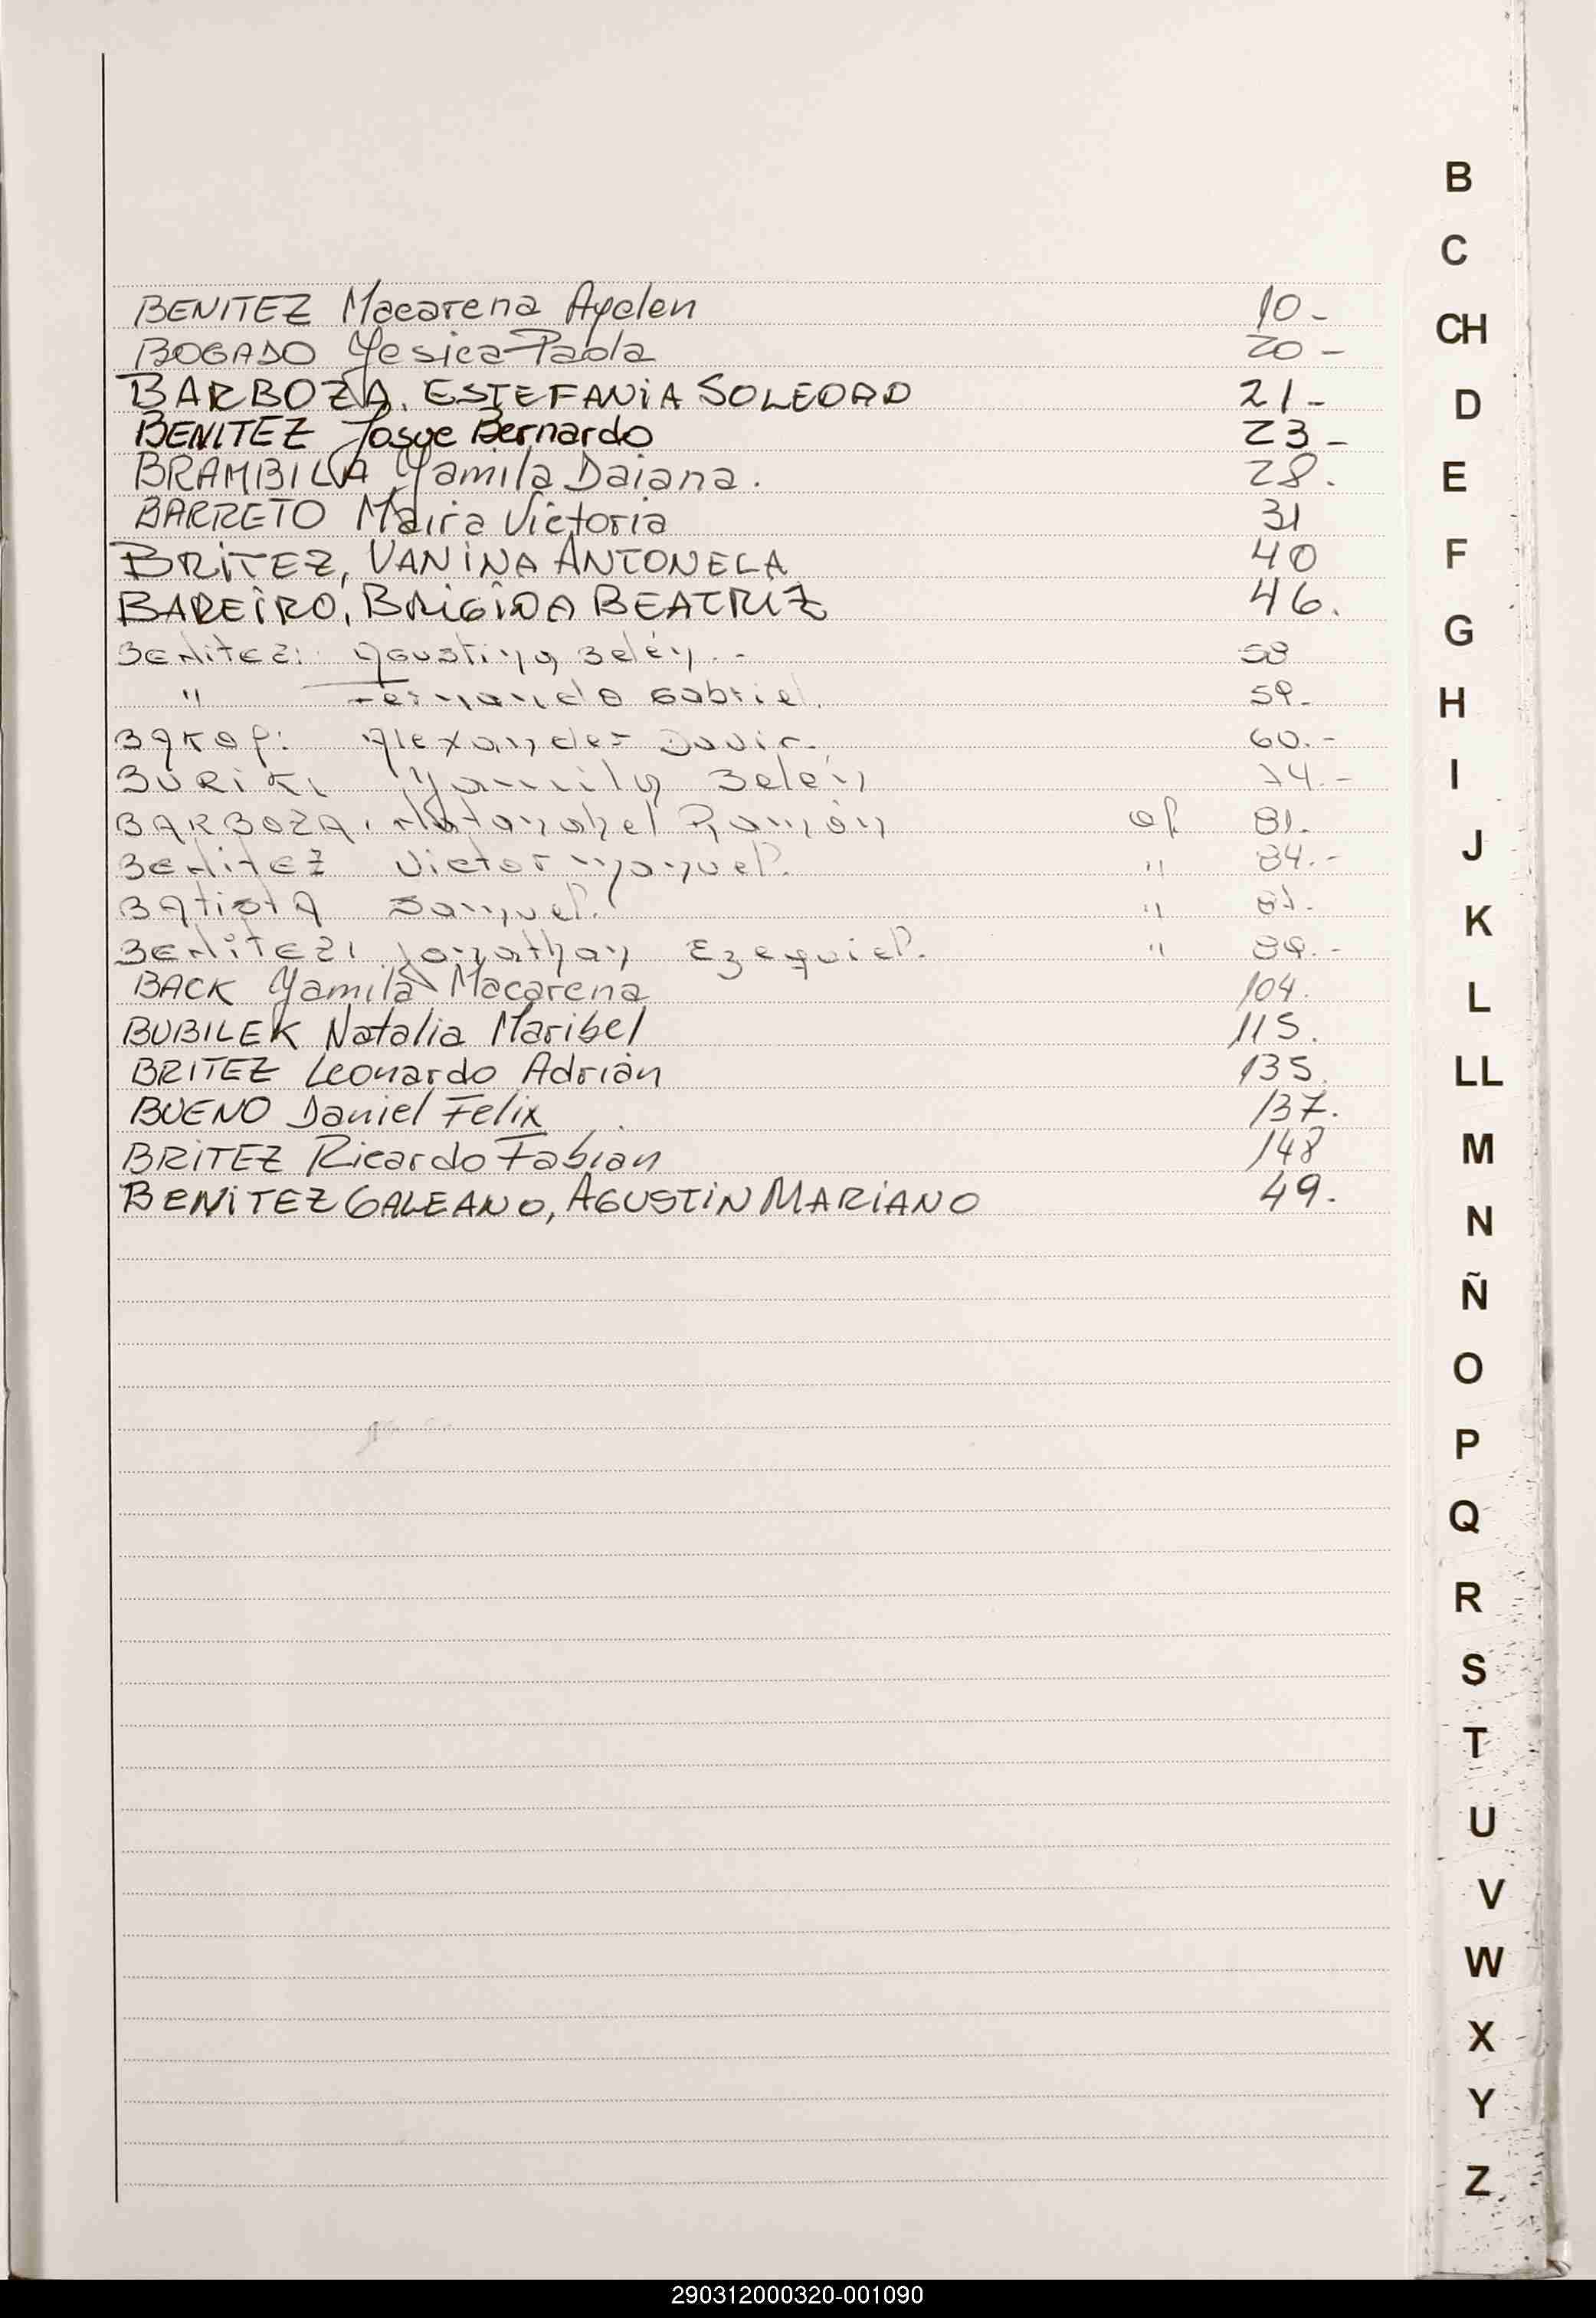 BENITEZ Macarena Ayelen 10-
BOGADO Yesica Paola 20-
BARBOZA, ESTEFANIA SOLEDAD 21-
BENITEZ Josue Bernardo 23-
BRAMBILLA Yamila Daiana. 28.
BARRETO Maira Victoria 31
BRITEZ, VANINA ANTONELA 40
BAREIRO, BRIGIDA BEATRIZ 46.
BENITEZ: Agustina Belén.- 58
" Fernando Gabriel. 59-
Alexander David. 60.-
Yamila Belén 74.-
BARBOZA, Natanahel Ramón of 81.
BENITEZ Victor Manuel. " 84.-
BATISTA Samuel. "
BENITEZ, Jonathan Ezequiel. "
BACK Yamila Macarena 104.
BUBILEK Natalia Maribel 115.
BRITEZ Leonardo Adrián 135.
BUENO Daniel Felix 137.
BRITEZ Ricardo Fabian 148
BENITEZ GALEANO, AGUSTIN MARIANO 49.
B
C
CH
D
E
F
G
H
I
J
K
L
LL
M
N
Ñ
O
P
Q
R
S
T
U
V
W
X
Y
Z
290312000320-001090